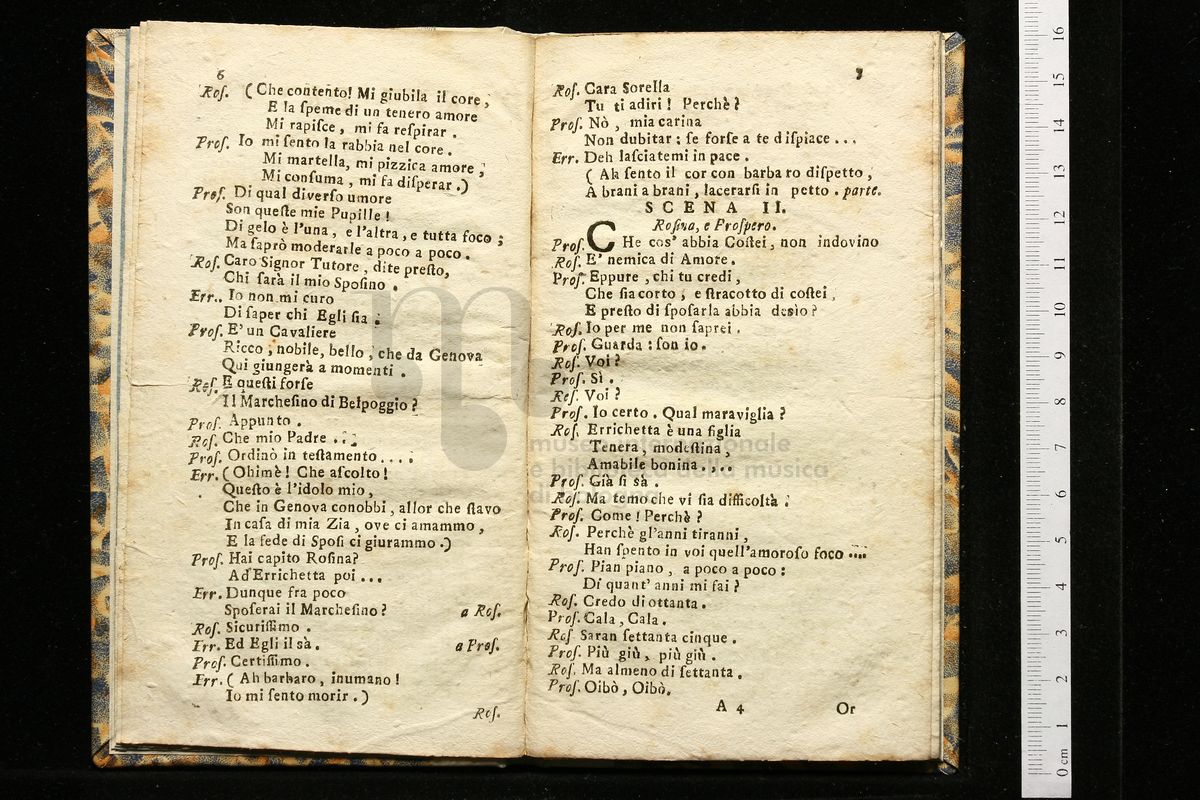 6
Ros. (Che contento! Mi giubila il core,
E la speme di un tenero amore
Mi rapisce, mi fa respirar.
Pros. Io mi sento la rabbia nel core.
Mi martella, mi pizzica amore;
Mi consuma, mi fa disperar.)
Pros. Di qual diverso umore
Son queste mie Pupille!
Di gelo è l'una, e l'altra, e tutta foco;
Ma saprò moderarle a poco a poco.
Ros. Caro Signor Tutore, dite presto,
Chi sarà il mio Sposino.
Err.. Io non mi curo
Di saper chi Egli sia.
Pros. E' un Cavaliere
Ricco, nobile, bello, che da Genova
Qui giungerà a momenti.
Ros. E questi forse
Il Marchesino di Belpoggio?
Pros. Appunto.
Ros. Che mio Padre ...
Pros. Ordinò in testamento....
Err. (Ohimè! Che ascolto!
Questo è l'idolo mio,
Che in Genova conobbi, allor che stavo
In casa di mia Zia, ove ci amammo,
E la fede di Sposi ci giurammo.)
Pros. Hai capito Rosina?
Ad Errichetta poi...
Err. Dunque fra poco
Sposerai il Marchesino? a Ros.
Ros. Sicurissimo.
Err. Ed Egli il sà. a Pros.
Pros. Certissimo.
Err. (Ah barbaro, inumano!
Io mi sento morir.)
Ros.
7
Ros. Cara Sorella
Tu ti adiri! Perchè?
Pros. Nò, mia carina
Non dubitar: se forse a te dispiace...
Err. Deh lasciatemi in pace.
(Ah sento il cor con barbaro dispetto,
A brani a brani, lacerarsi in petto. parte.
SCENA II.
Rosina, e Prospero.
Pros. CHe cos' abbia Costei, non indovino
Ros. E' nemica di Amore.
Pros. Eppure, chi tu credi,
Che sia corto, e stracotto di costei,
E presto di sposarla abbia desio?
Ros. Io per me non saprei.
Pros. Guarda: son io.
Ros. Voi?
Pros. Sì.
Ros. Voi?
Pros. Io certo. Qual maraviglia?
Ros. Errichetta è una figlia
Tenera, modestina,
Amabile bonina....
Pros. Già si sà.
Ros. Ma temo che vi sia difficoltà.
Pros. Come! Perchè?
Ros. Perchè gl'anni tiranni,
Han spento in voi quell'amoroso foco ....
Pros. Pian piano, a poco a poco:
Di quant' anni mi fai?
Ros. Credo di ottanta.
Pros. Cala, Cala.
Ros Saran settanta cinque.
Pros. Più giù, più giù.
Ros. Ma almeno di settanta.
Pros. Oibò, Oibò.
A 4 Or
museo internazionale
e biblioteca della musica
di bologna
0 cm 1 2 3 4 5 6 7 8 9 10 11 12 13 14 15 16